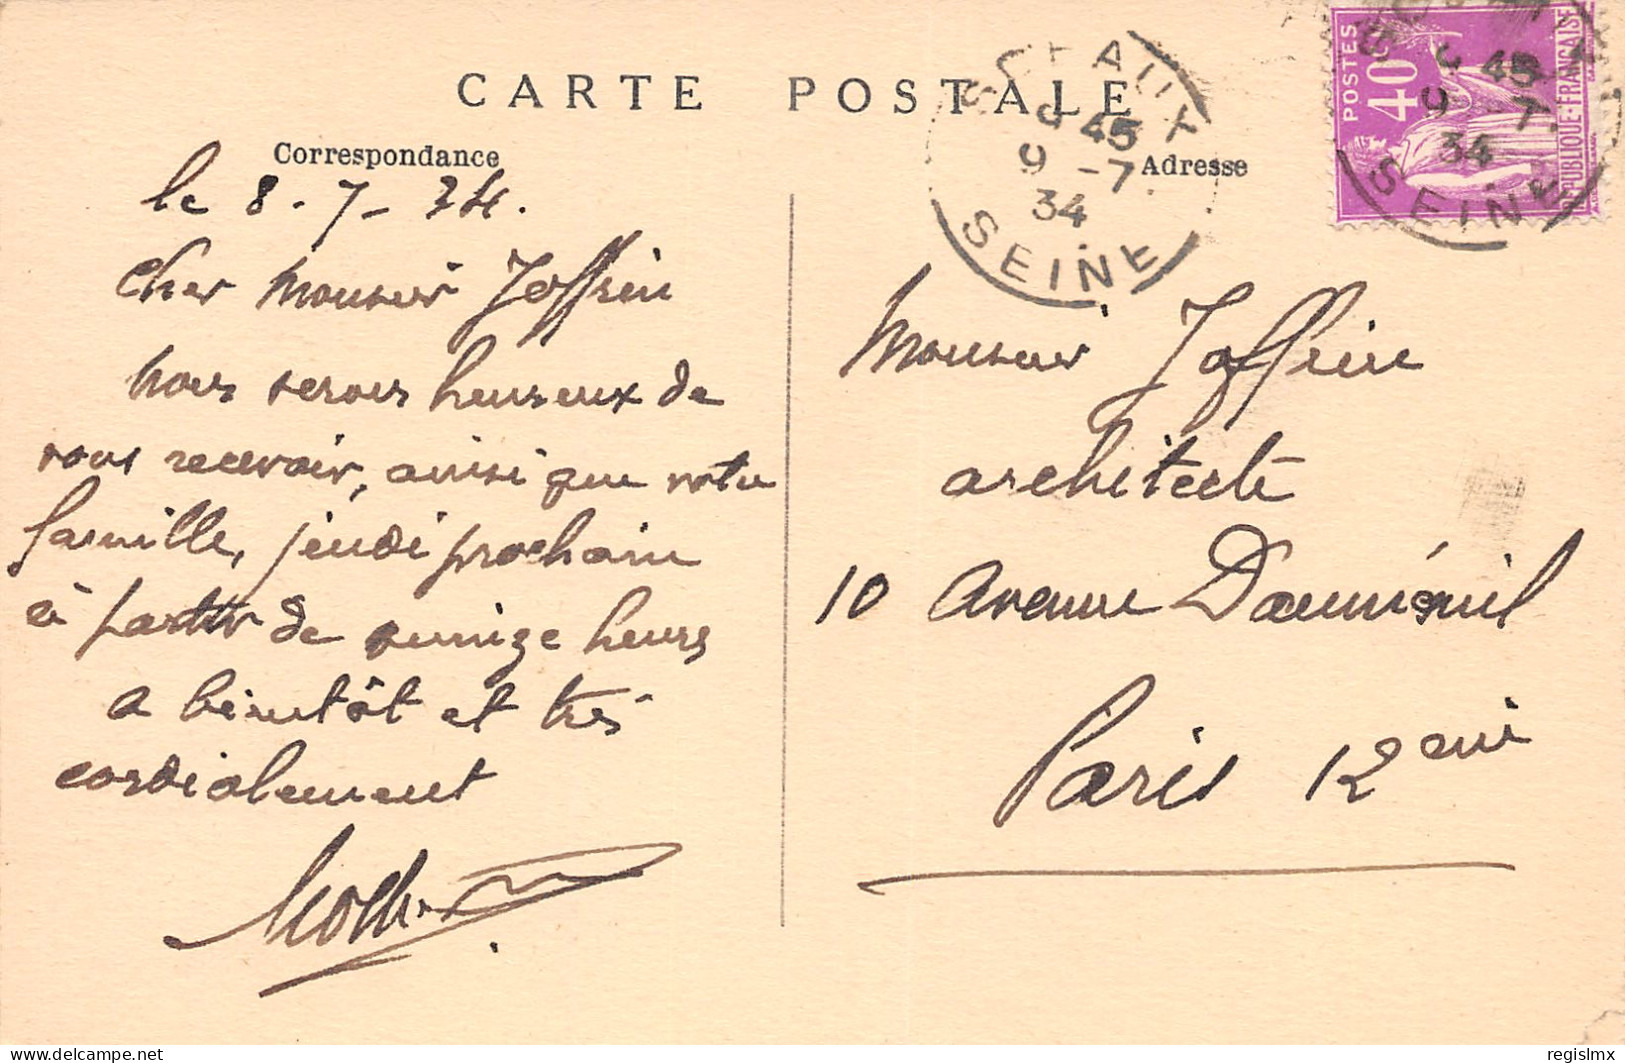 CARTE POSTALE
Correspondance
Adresse
le 8-7-34.
Cher Monsieur Joffrin
nous serons heureux de
vous recevoir, ainsi que votre
famille, jeudi prochain
à partir de quinze heures
a bientôt et très
cordialement
Monsieur Joffrin
architecte
10 Avenue Dauménil
Paris 12ème
SCEAUX
9 45
9 -7.
34
SEINE
POSTES
40c
REPUBLIQUE-FRANÇAISE
9 45
9 -7.
34
SEINE
delcampe.net
regislmx